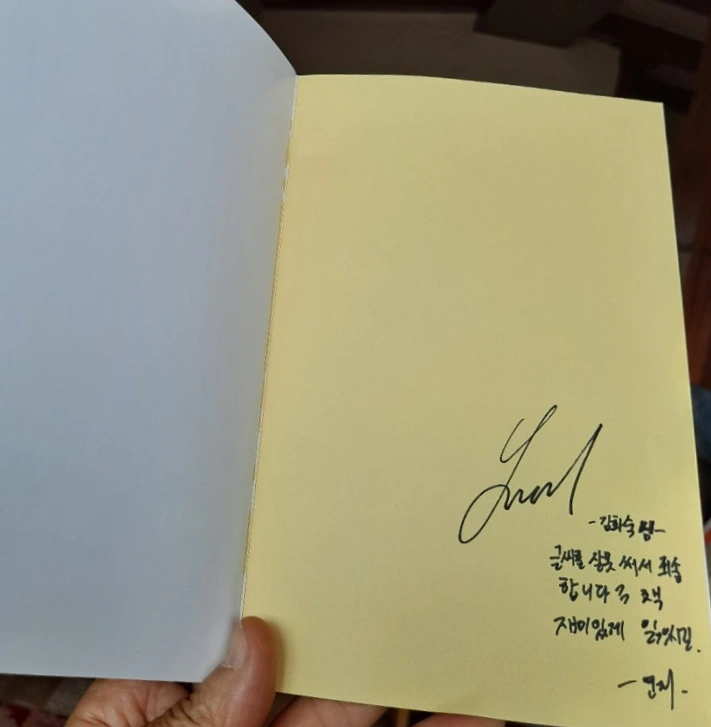 -김화숙 님-
글씨를 잘못 써서 죄송
합니다 꼭
재미있게 읽으시길.